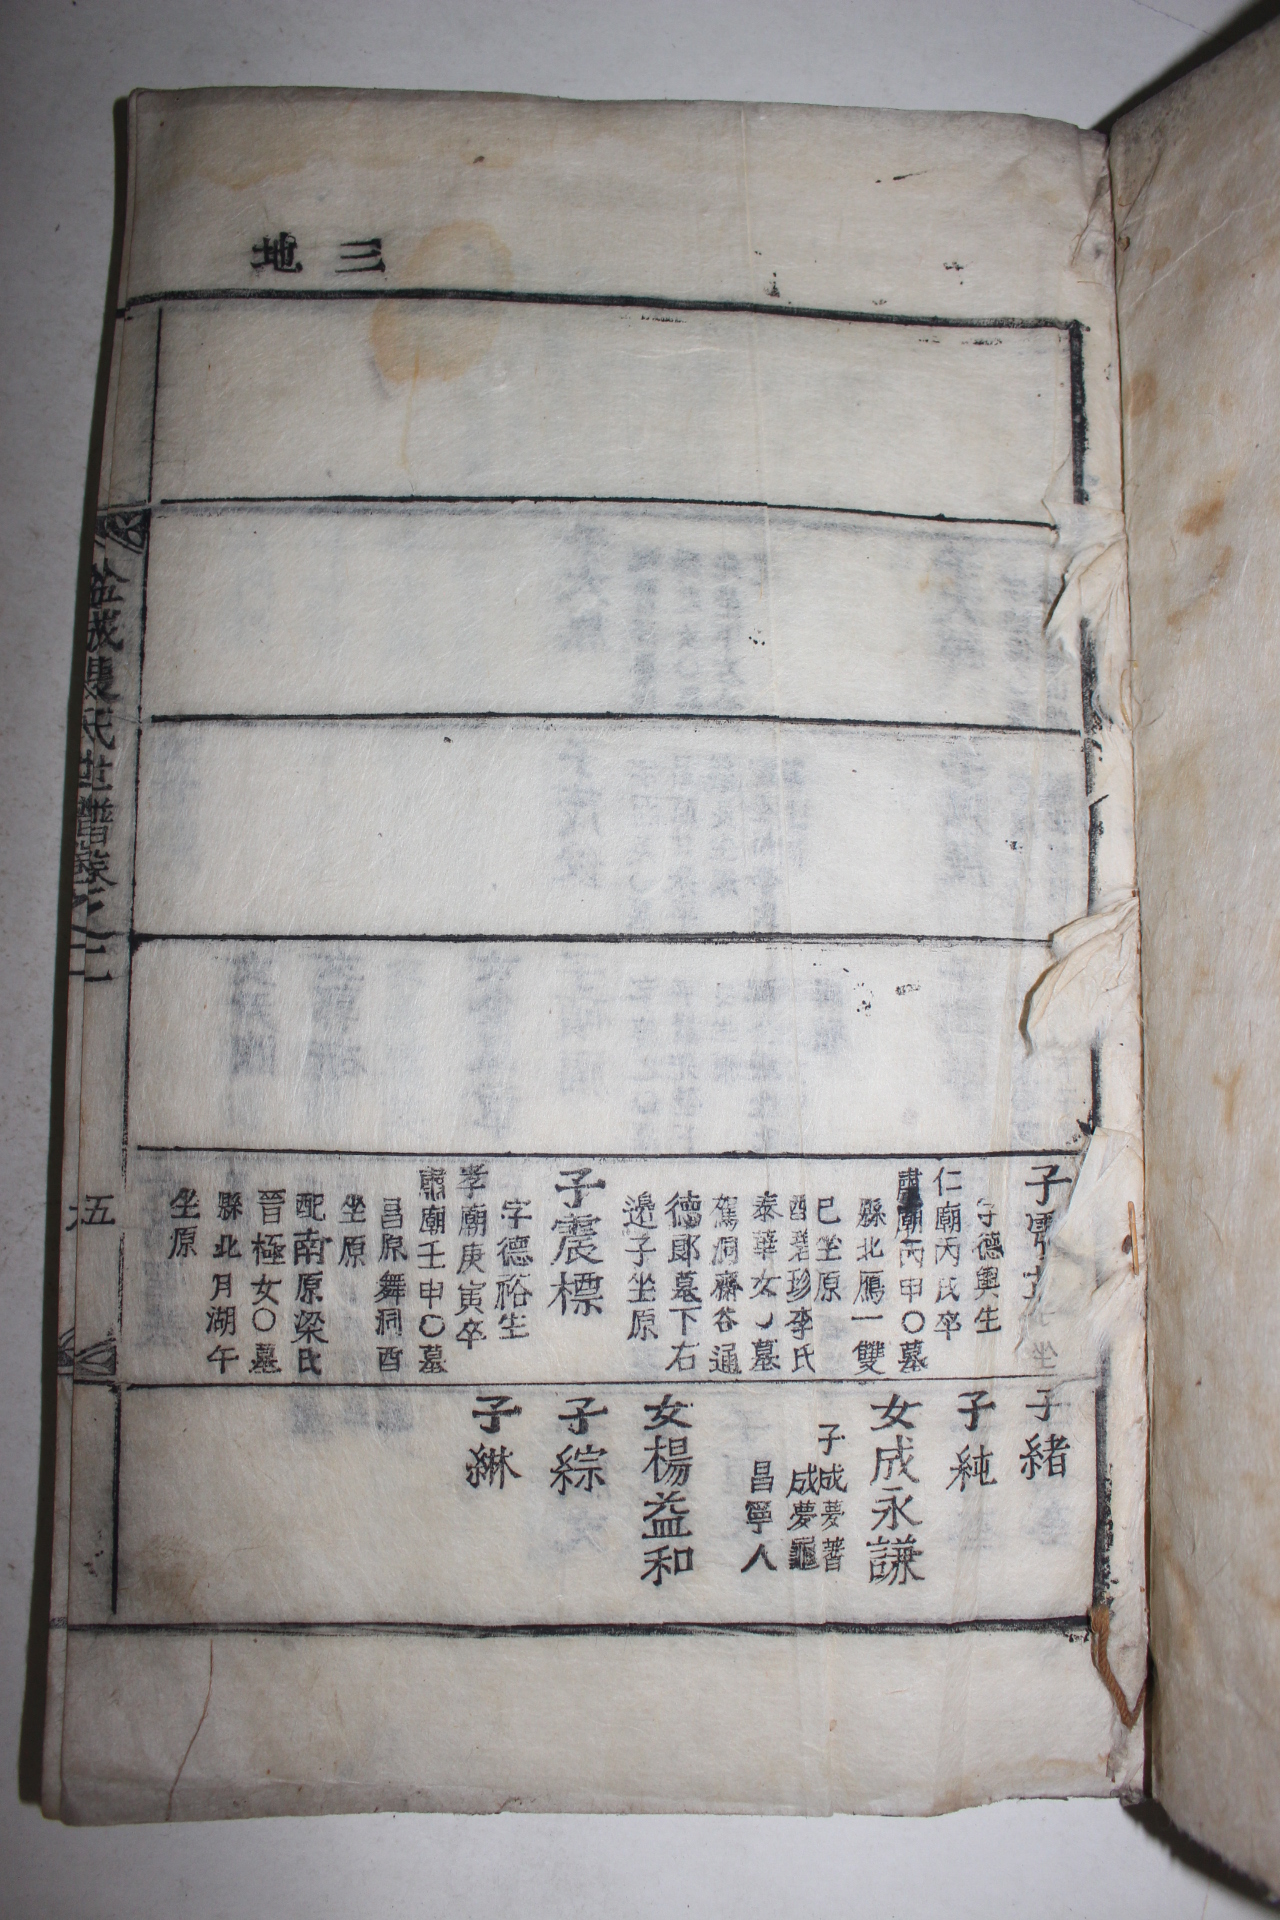 地三
盆城裵氏世譜卷之二
五
子震
字德輿生
仁廟丙戌卒
肅廟丙申〇墓
縣北鴈一雙
巳坐原
配碧珍李氏
泰華女〇墓
駕洞齋谷通
德郎墓下右
邊子坐原
子震標
字德裕生
孝廟庚寅卒
肅廟壬申〇墓
昌原舞洞酉
坐原
配南原梁氏
晉極女〇墓
縣北月湖午
坐原
子緒
子純
女成永謙
子成夢蓍
成夢龜
昌寧人
女楊益和
子綜
子綝